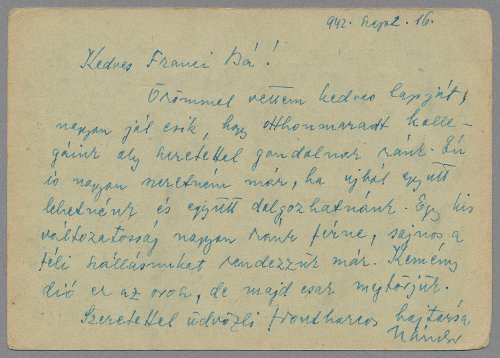 942. szept. 16.
Kedves Franci Bá!
Örömmel vettem kedves lapját,
nagyon jól esik, hogy otthonmaradt kolle-
gáink oly szeretettel gondolnak ránk. Én
is nagyon szeretném már, ha ujból együtt
lehetnénk és együtt dolgozhatnánk. Egy kis
változatosság nagyon ránk férne, sajnos a
téli szállásunkat rendezzük már. Kemény
dió ez az orosz, de majd csak megtörjük.
Szeretettel üdvözli frontharcos bajtársa
Nándor